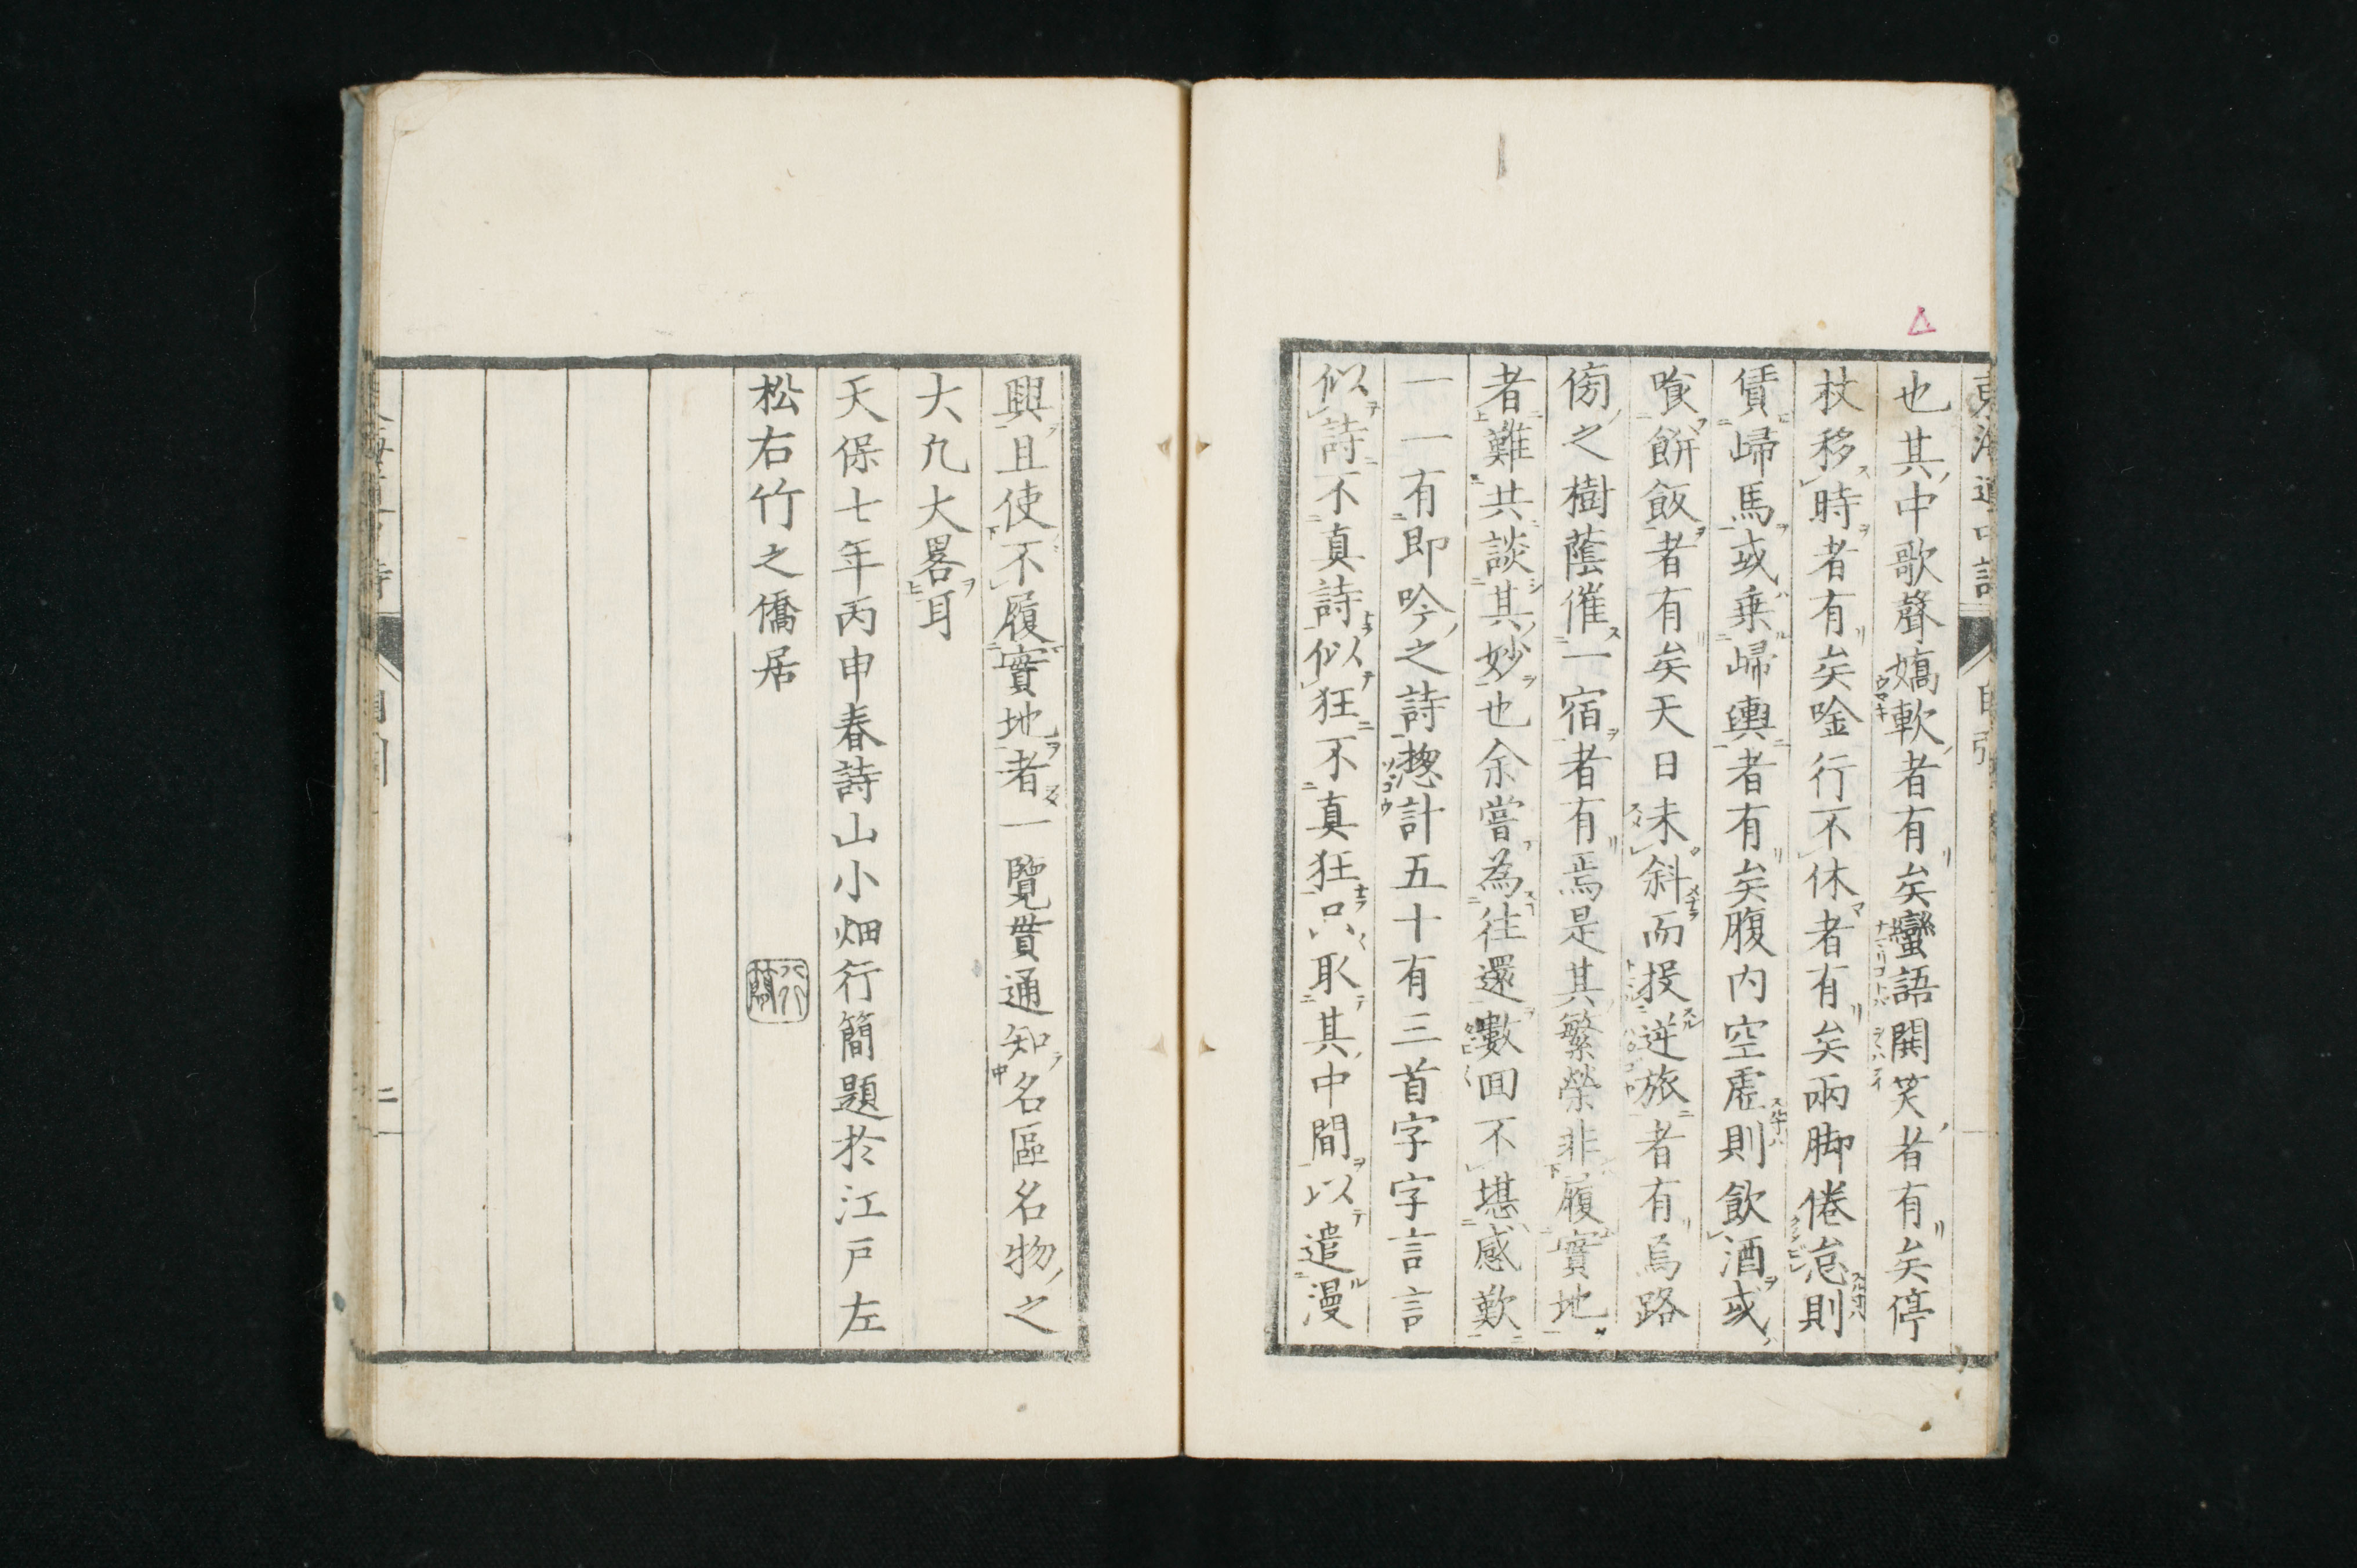 也其中歌聲嬌軟者有矣蠻語閧笑者有矣停
杖移時者有矣唫行不休者有矣兩脚倦怠則
賃歸馬或乗歸輿者有矣腹内空虛則飲酒或
喰餅飯者有矣天日未斜而投逆旅者有焉路
傍之樹蔭催一宿者有焉是其繁榮非履實地
者難共談其妙也余嘗為往還數回不堪感歎
一一有即吟之詩惣計五十有三首字字言言
似詩不真詩似狂不真狂只取其中間以遣漫
興且使不履實地者一覽貫通知名區名物之
大凡大畧耳
天保七年丙申春詩山小畑行簡題於江戸左
松右竹之僑居
行簡